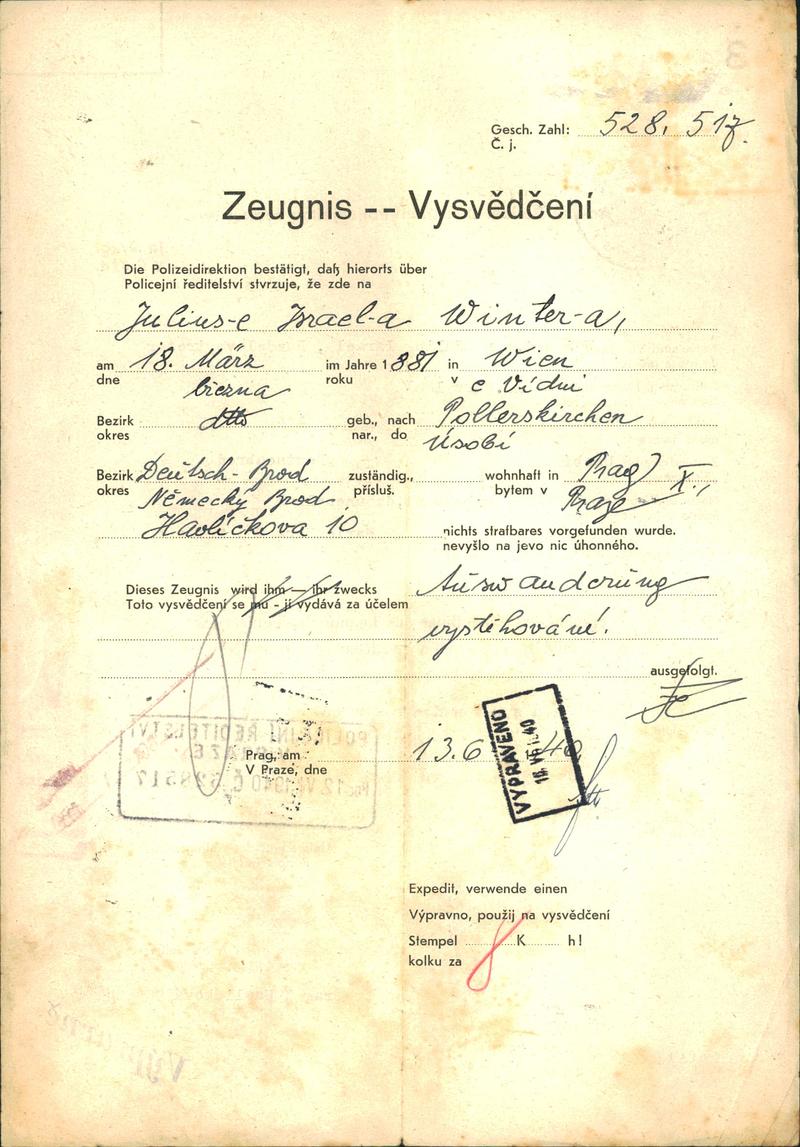 Gesch. Zahl: 528.517.
Č. j.
Zeugnis -- Vysvědčení
Die Polizeidirektion bestätigt, daß hierorts über
Policejní ředitelství stvrzuje, že zde na
Julius-e Israel-a Winter-a,
am 18. März im Jahre 1881 in Wien
dne března roku v e Vídni
Bezirk dtto geb., nach Pollerskirchen
okres nar., do Úsobí
Bezirk Deutsch-Brod zuständig., wohnhaft in Prag X.,
okres Německý Brod přísluš. bytem v Praze
Havlíčkova 10 nichts strafbares vorgefunden wurde.
nevyšlo na jevo nic úhonného.
Dieses Zeugnis wird ihm — ihr zwecks Auswanderung
Toto vysvědčení se mu - jí vydává za účelem
vystěhování.
ausgefolgt.
POLICEJNÍ ŘEDITELSTVÍ
Prag, am 13.6. 40
V Praze, dne
VYPRAVENO
18. VI. 40
Expedit, verwende einen
Výpravno, použij na vysvědčení
Stempel 8 K h!
kolku za